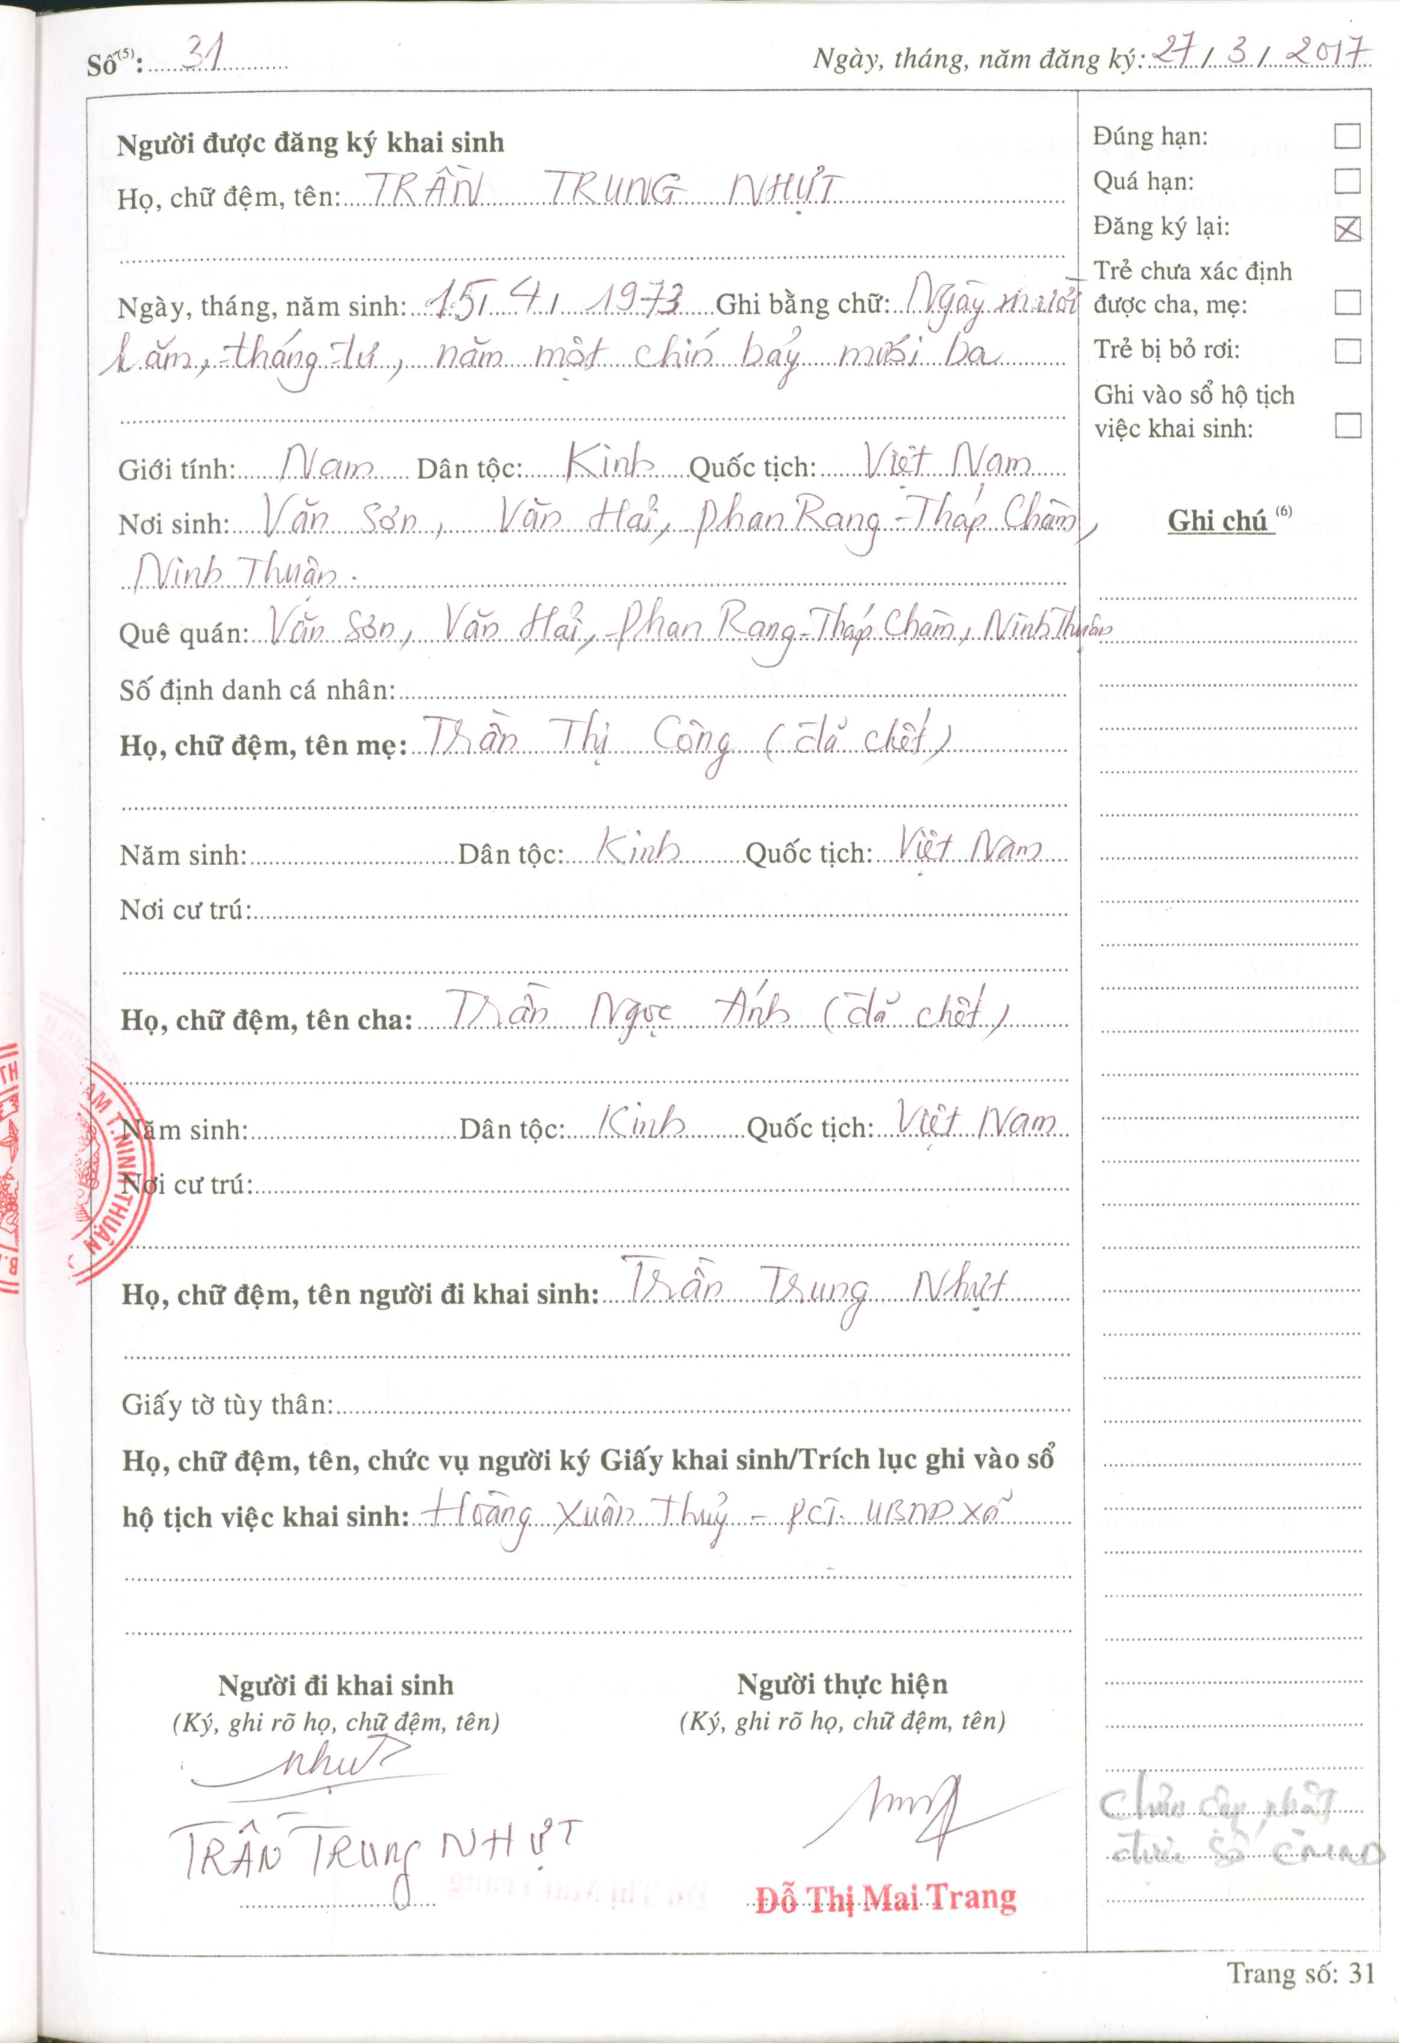 Số⁽⁵⁾: 31 Ngày, tháng, năm đăng ký: 27 / 3 / 2017
Người được đăng ký khai sinh
Họ, chữ đệm, tên: TRẦN TRUNG NHỰT
Ngày, tháng, năm sinh: 15 / 4 / 1973 Ghi bằng chữ: Ngày mười
lăm, tháng tư, năm một chín bảy mươi ba
Giới tính: Nam Dân tộc: Kinh Quốc tịch: Việt Nam
Nơi sinh: Văn Sơn, Văn Hải, Phan Rang - Tháp Chàm,
Ninh Thuận.
Quê quán: Văn Sơn, Văn Hải, Phan Rang - Tháp Chàm, Ninh Thuận
Số định danh cá nhân:
Họ, chữ đệm, tên mẹ: Trần Thị Công (đã chết)
Năm sinh: Dân tộc: Kinh Quốc tịch: Việt Nam
Nơi cư trú:
Họ, chữ đệm, tên cha: Trần Ngọc Ánh (đã chết)
Năm sinh: Dân tộc: Kinh Quốc tịch: Việt Nam
Nơi cư trú:
Họ, chữ đệm, tên người đi khai sinh: Trần Trung Nhựt
Giấy tờ tùy thân:
Họ, chữ đệm, tên, chức vụ người ký Giấy khai sinh/Trích lục ghi vào sổ
hộ tịch việc khai sinh: Hoàng Xuân Thuỷ - PCT. UBND xã
Người đi khai sinh
(Ký, ghi rõ họ, chữ đệm, tên)
Nhựt
TRẦN TRUNG NHỰT
Người thực hiện
(Ký, ghi rõ họ, chữ đệm, tên)
Đỗ Thị Mai Trang
Đúng hạn:
Quá hạn:
Đăng ký lại: X
Trẻ chưa xác định
được cha, mẹ:
Trẻ bị bỏ rơi:
Ghi vào sổ hộ tịch
việc khai sinh:
Ghi chú ⁽⁶⁾
Chưa cập nhật
được số CMND
AM T.NINH THUẬN
Trang số: 31